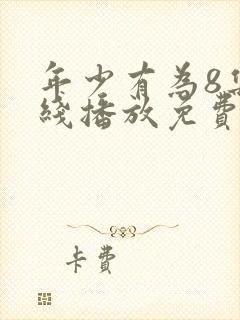 年少有为8集
綫播放免費
卡費